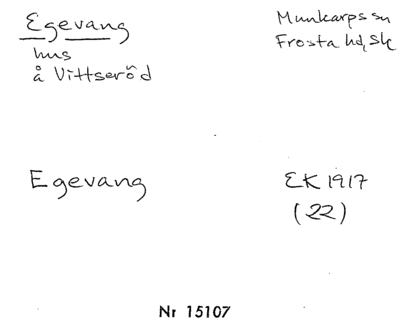 Egevang
hus
å Vittseröd
Munkarps sn
Frosta hd, Sk
Egevang
EK 1917
(22)
Nr 15107